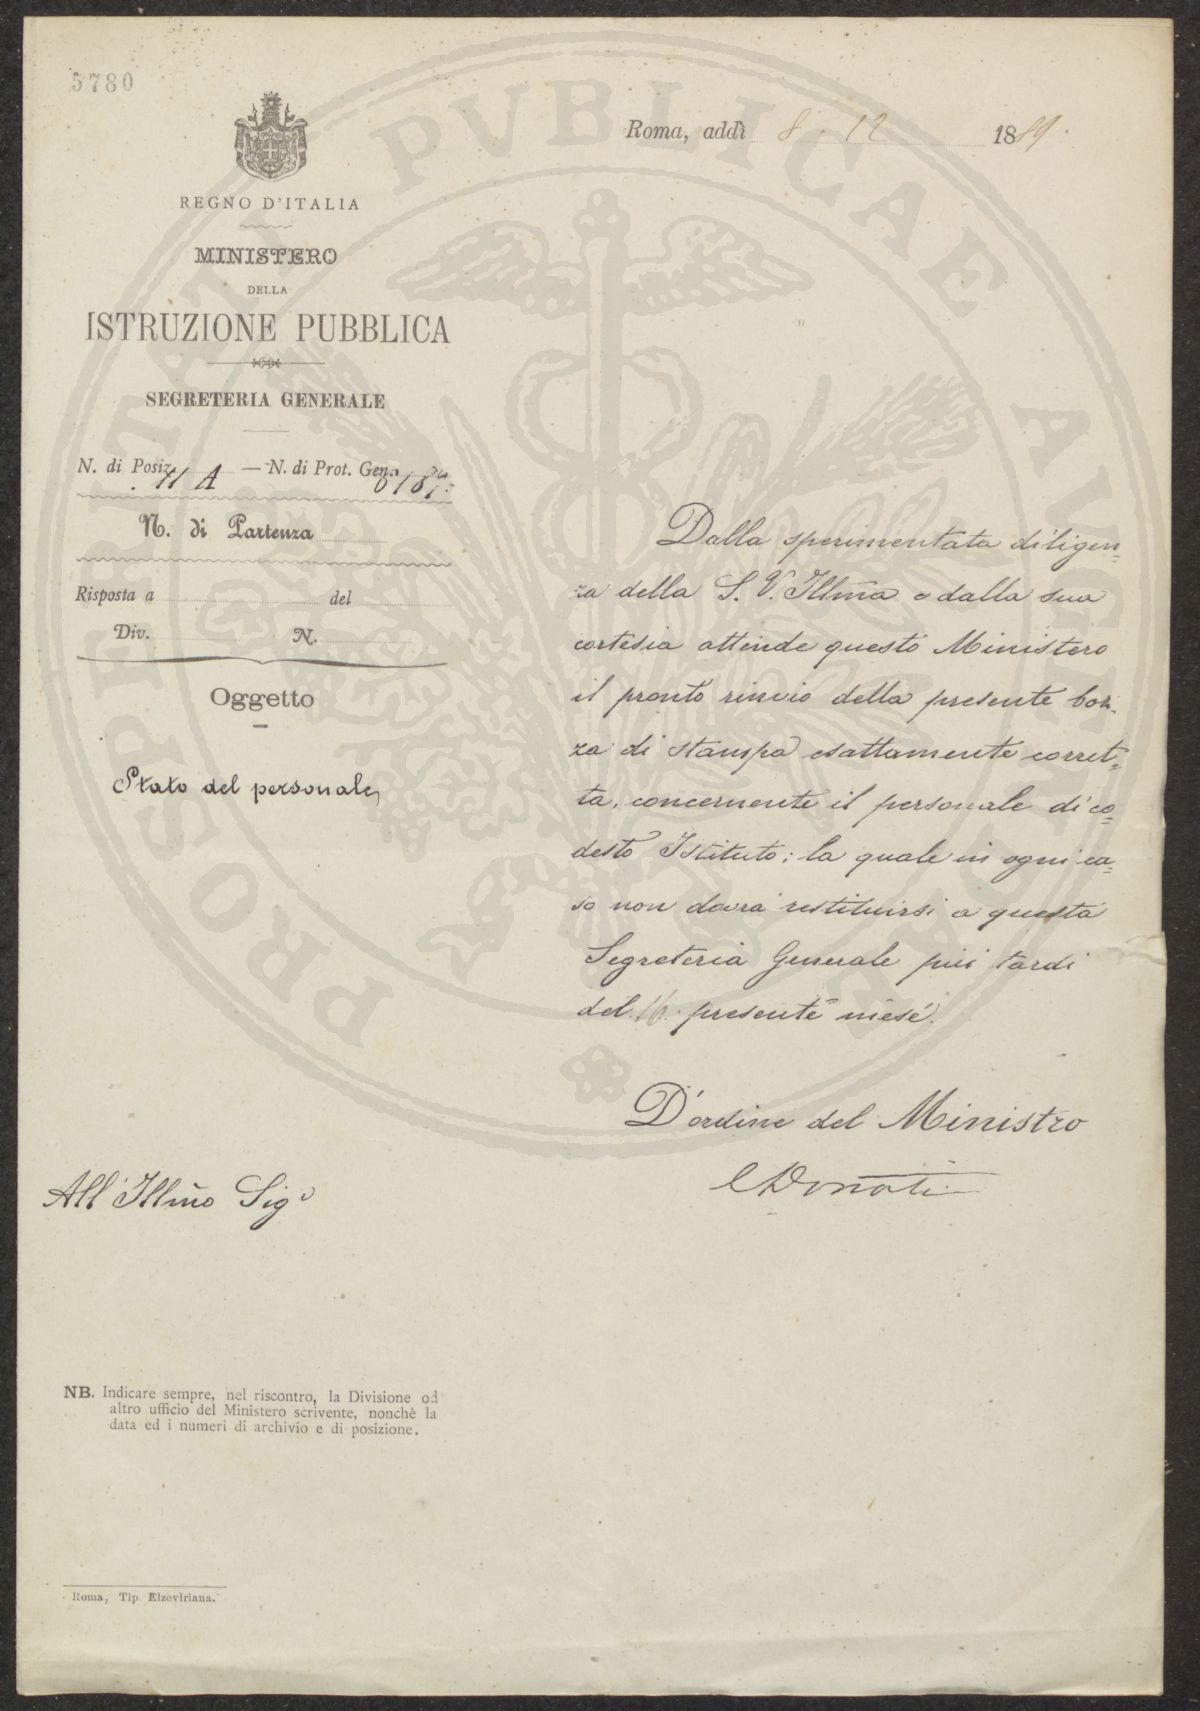 5780
Roma, addì 8. 12 1889.
REGNO D'ITALIA
MINISTERO
DELLA
ISTRUZIONE PUBBLICA
SEGRETERIA GENERALE
N. di Posiz. 11 A — N. di Prot. Gen.
N. di Partenza
Risposta a del
Div. N.
Oggetto
Stato del personale
Dalla sperimentata diligen-
za della S. V. Illma e dalla sua
cortesia attende questo Ministero
il pronto rinvio della presente boz-
za di stampa esattamente corret-
ta, concernente il personale di co-
desto Istituto; la quale in ogni ca-
so non dovrà restituirsi a questa
Segreteria Generale più tardi
del 16 presente mese.
D'ordine del Ministro
CDonati
All' Illmo Sigr
NB. Indicare sempre, nel riscontro, la Divisione od
altro ufficio del Ministero scrivente, nonchè la
data ed i numeri di archivio e di posizione.
Roma, Tip. Elzeviriana.
PROSPERITATI PVBLICAE AVGENDAE